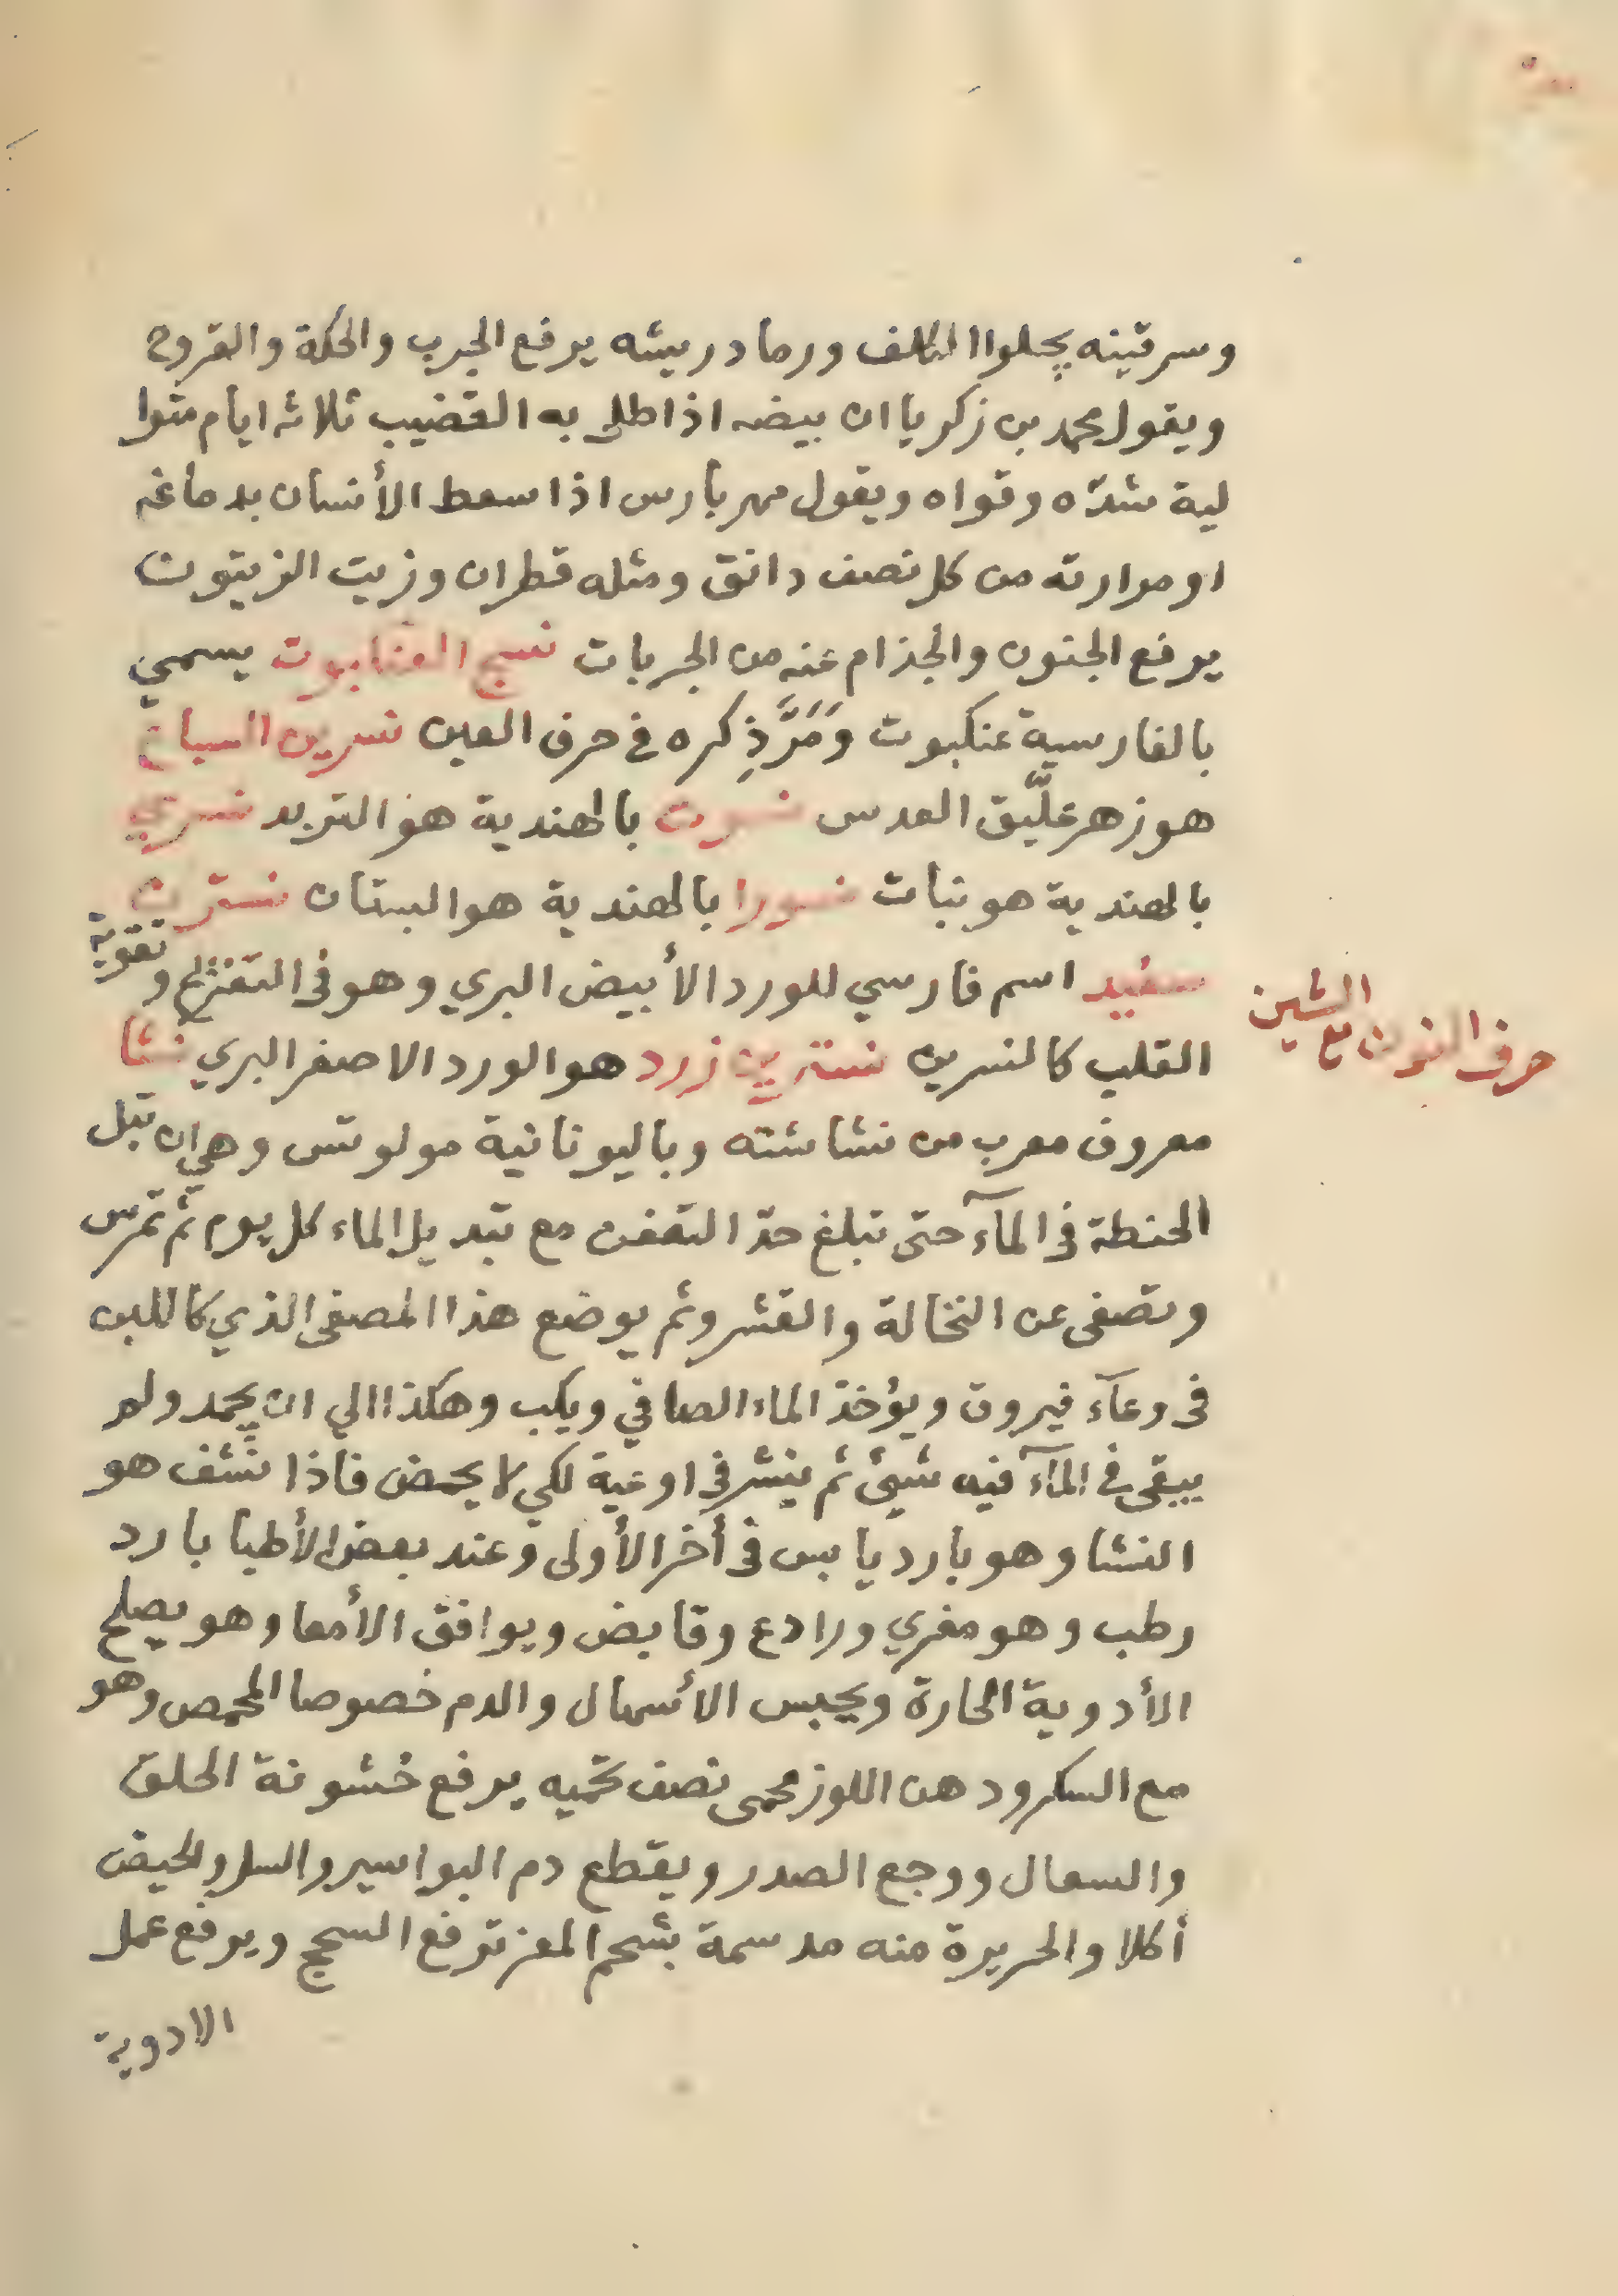 وسرقينه يجلوا الكلف ورماد ريشه يرفع الجرب والحكة والقروح
ويقول محمد بن زكريا ان بيضه اذا طلى به القضيب ثلاثه ايام متوا
لية شدّه وقواه ويقول مهربارس اذا سعط الأنسان بدماغه
او مرارته من كل نصف دانق ومثله قطران وزيت الزيتون
يرفع الجنون والجذام عنه من الجربات نسج العنكبوت يسمي
بالفارسية عنكبوت وَمَرَّ ذِكره في حرف العين نسرين السياج
هو زهر علّيق العدس نسوت بالهندية هو التربد نسري
بالهندية هو نبات نسورا بالهندية هو البستان نسترن
سفيد اسم فارسي للورد الأبيض البري وهو في التفتيح وتقوية
حرف النون مع الشين
القلب كالنسرين نسترين زرد هو الورد الاصفر البري نشا
معروف معرب من نشاشته وباليونانية مولوتس وهي ان تبل
الحنطة في المآء حتى تبلغ حدّ التعفن مع تبديل الماء كل يوم ثم تمرس
وتصفى عن النخالة والقشر وثم يوضع هذا المصفى الذي كاللبن
فى وعآء فيروق ويؤخذ الماء الصافي ويكب وهكذا الي ان يجمد ولم
يبقى في المآء فيه شيئ ثم ينشر في اوعية لكي لا يحمض فاذا نشف هو
النشا وهو بارد يابس في أخر الأولى وعند بعض الأطبا بارد
رطب وهو مغري ورادع وقابض ويوافق الأمعا وهو يصلح
الأدوية الحارة ويحبس الأسهال والدم خصوصا المحمص وهو
مع السكر ودهن اللوز محمى نصف تحميه يرفع خشونة الحلق
والسعال ووجع الصدر ويقطع دم البواسير والسل والحيض
أكلا والحريرة منه مدسمة بشحم المعز ترفع السحج ويرفع عمل
الادوية